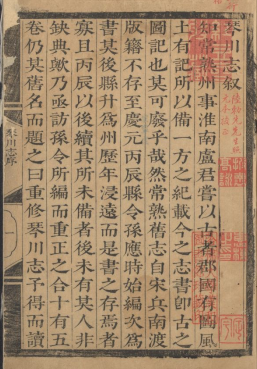 琴川志敘
知常熟州事淮南盧君嘗以古者郡國有圖風
土有記所以備一方之紀載今之志書卽古之
圖記也其可廢乎哉然常熟舊志自宋兵南渡
版籍不存至慶元丙辰縣令孫應時始編次爲
書某後縣升爲州歷年浸遠而是書之存焉者
寡且丙辰以後續其所未備者後未有其人非
缺典歟乃亟訪孫令所編而重正之合十有五
卷仍其舊名而題之曰重修琴川志予得而讀
琴川志序
一